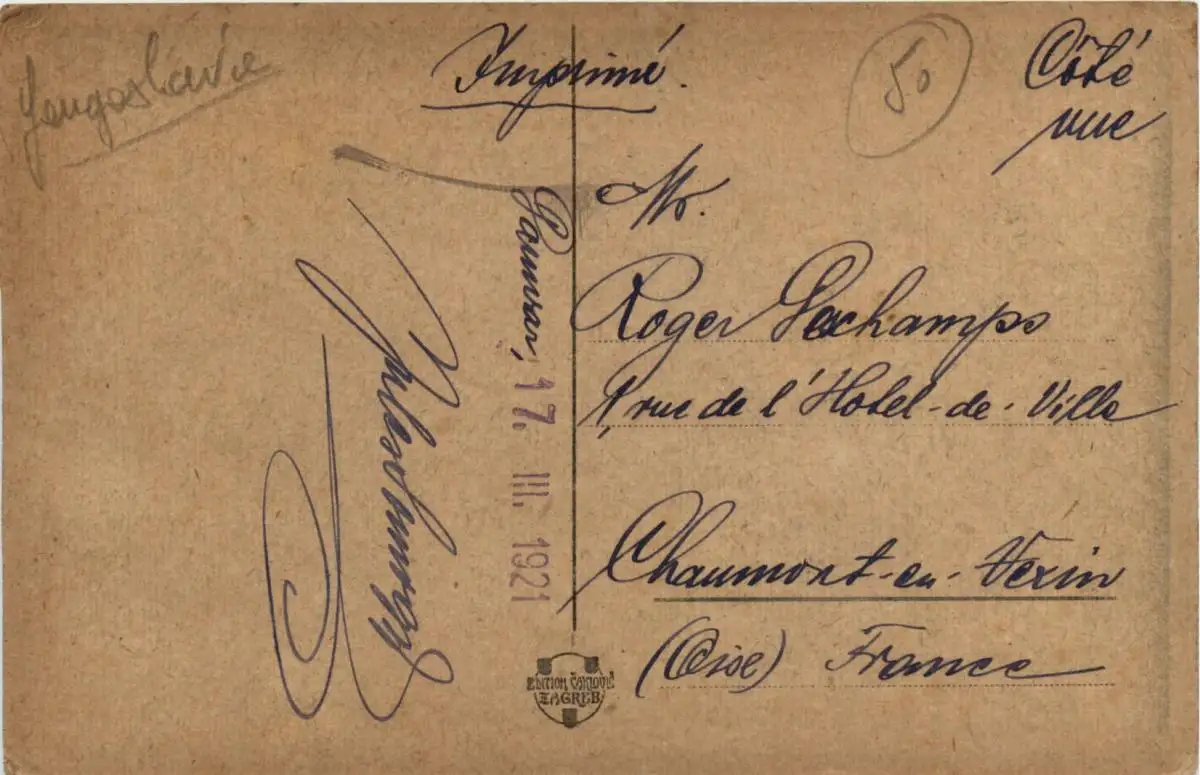 Yougoslavie
Imprimé.
50
Côté
vue
Mr.
Roger Dechamps
1, rue de l'Hotel-de-Ville
Chaumont-en-Vexin
(Oise) France
17. III. 1921
EDITION ČAKLOVIĆ
ZAGREB